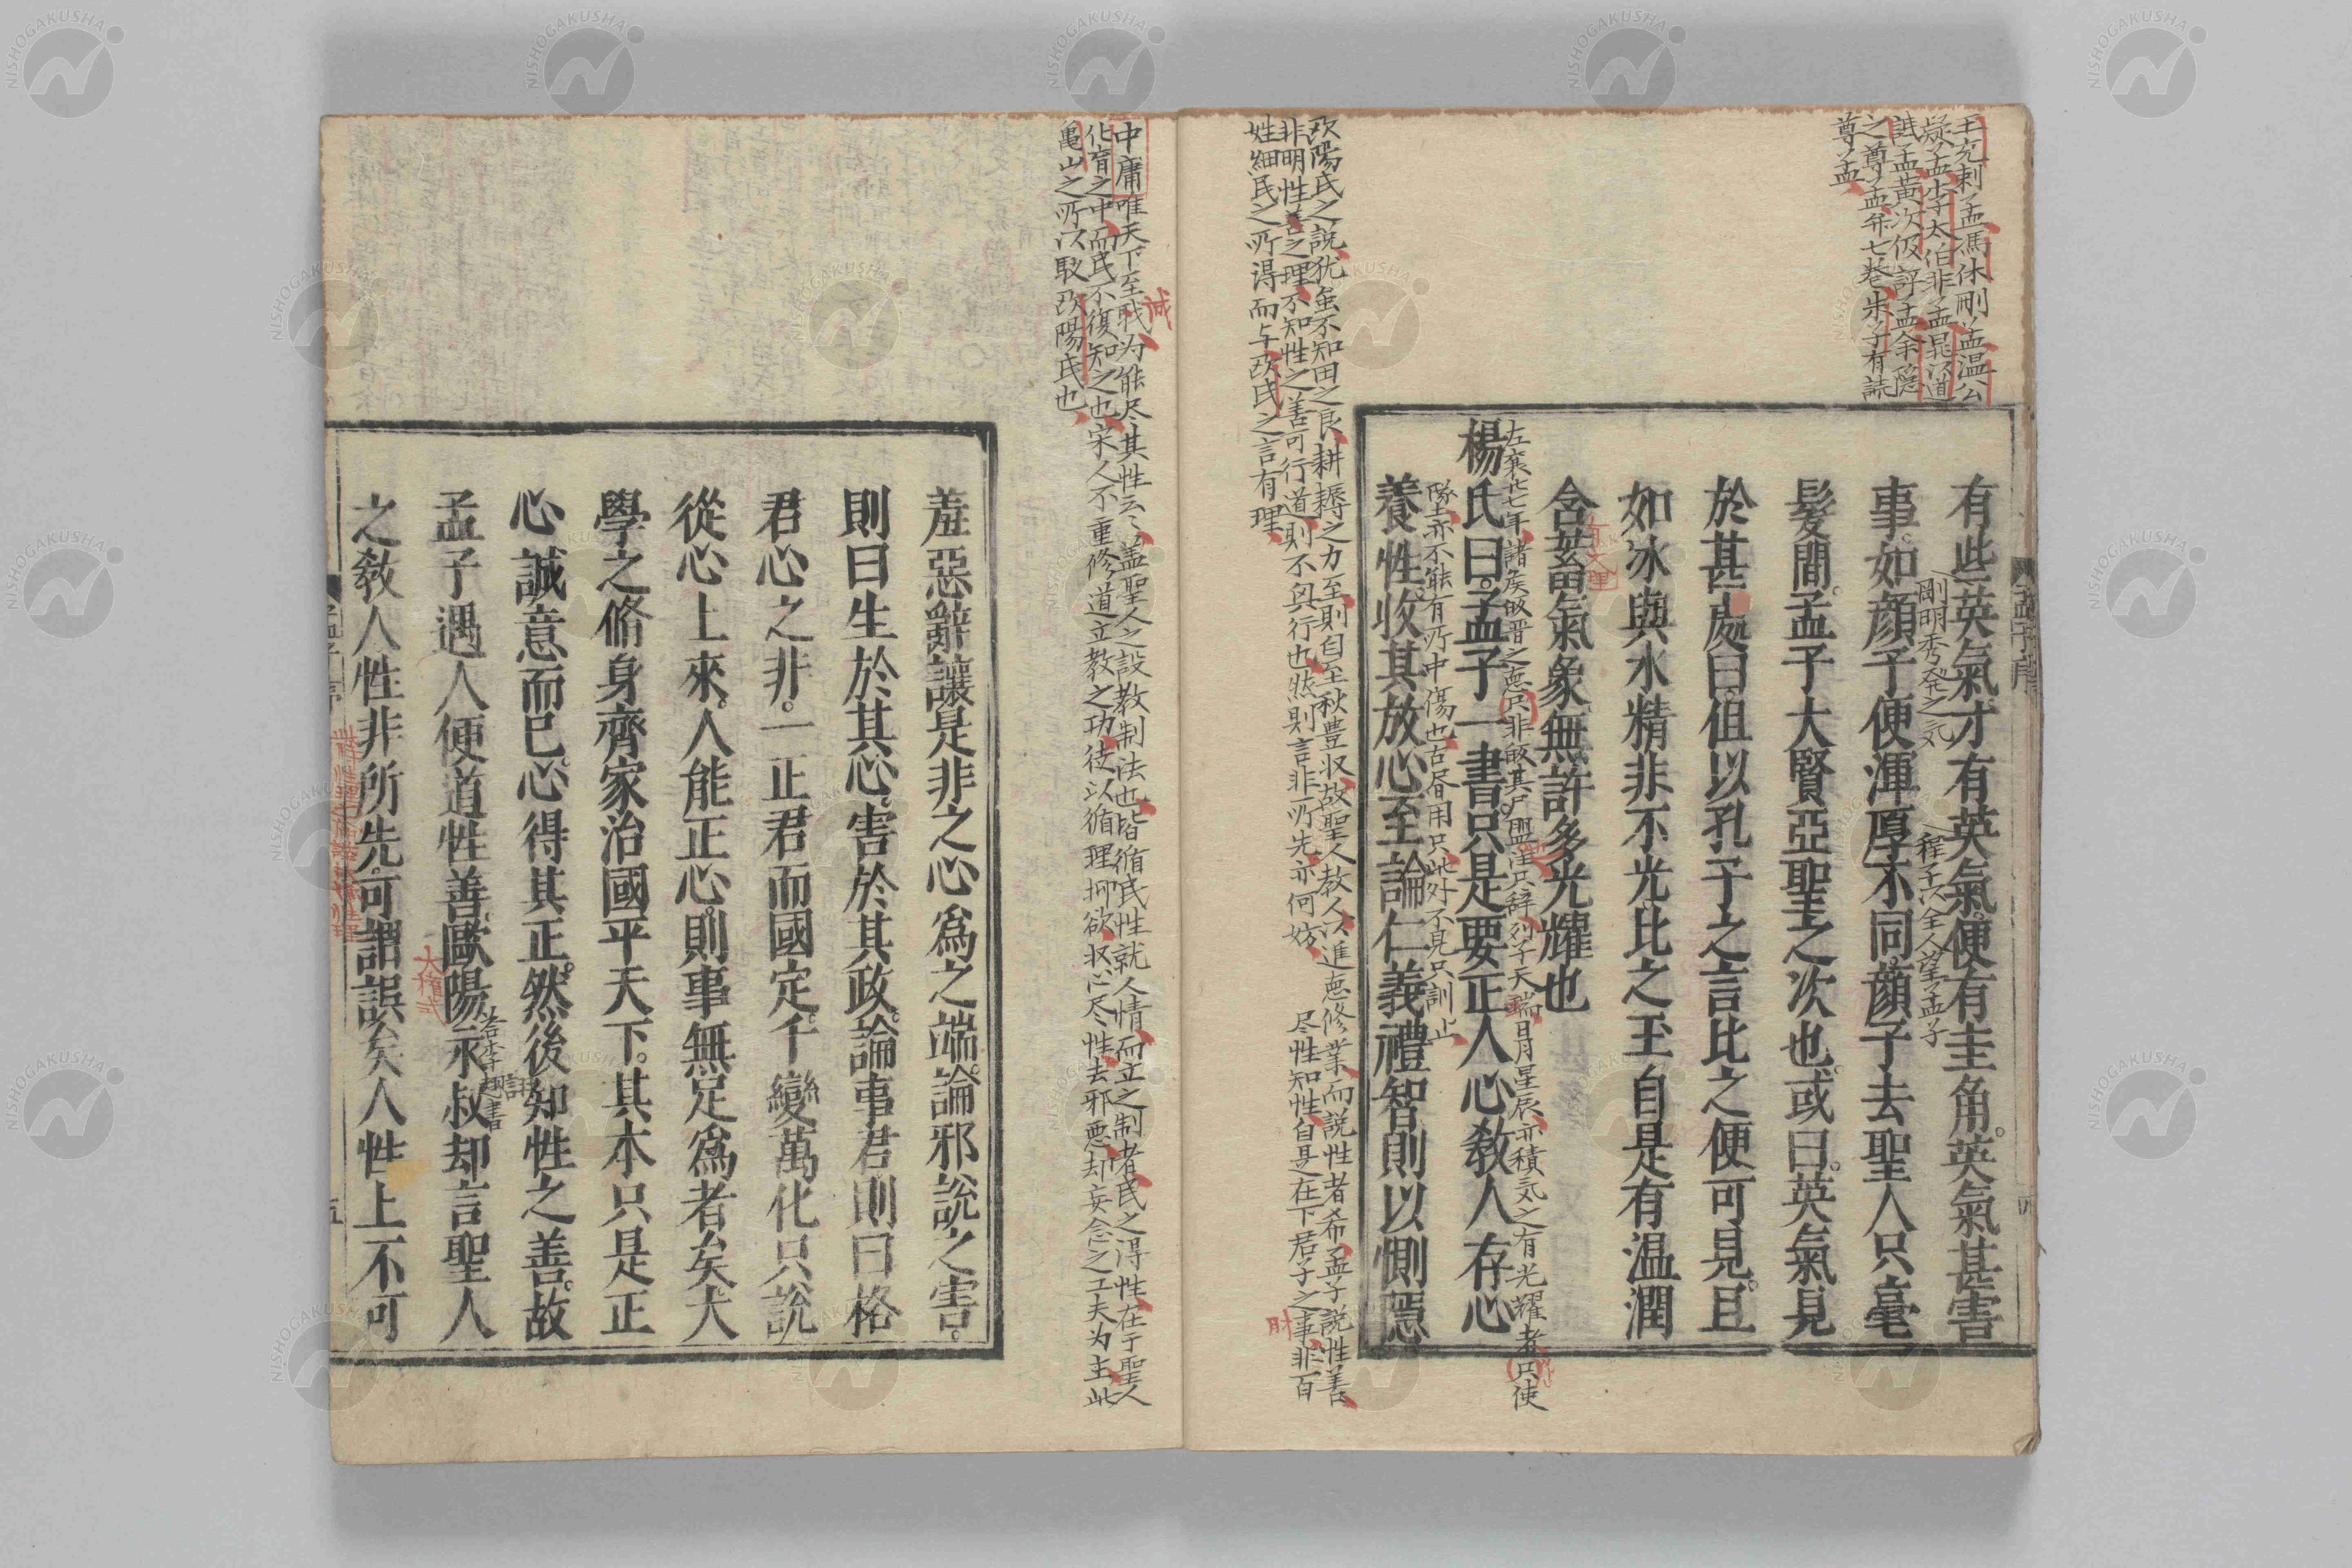 王充刺孟馮休刪孟温公
疑孟李太伯非孟晁以道
詆孟黄次伋評孟余隠
之尊孟弁七巻朱子有読
尊孟
孟子序
四
有些英氣才有英氣便有圭角英氣甚害
剛明秀発之気
程子以全人望孟子
事如顔子便渾厚不同顔子去聖人只毫
髮間孟子大賢亞聖之次也或曰英氣見
於甚處曰但以孔子之言比之便可見且
如冰與水精非不光比之玉自是有温潤
有文理
含蓄氣象無許多光耀也
左襄廿七年諸矦皈晋之悳只非皈其尸盟注只辞列子天瑞日月星辰亦積気之有光耀者只使
墜亦不能有所中傷也古昼用只此好不見只訓止
楊氏曰孟子一書只是要正人心敎人存心
養性收其放心至論仁義禮智則以惻隱
欧陽氏之説犹虽不知田之良耕耨之力至則自至秋豊収故聖人教人以進悳修業而説性者希孟子説性善
非明性善之理不知性之善可行道則不與行也然則言非所先亦何妨 尽性知性自是在下君子之事非百
姓細民之所得而与欧氏之言有理
誠
中庸唯天下至戝为能尽其性云々盖聖人之設教制法也皆循民性就人情而立之制者民之得性在于聖人
化育之中而民不復知之也宋人不重修道立教之功徒以循理抑欲収心尽性去邪悪却妄念之工夫为主此
亀山之所以駁欧陽氏也
羞惡辭讓是非之心爲之端論邪說之害
則曰生於其心害於其政論事君則曰格
君心之非一正君而國定千變萬化只說
從心上來人能正心則事無足爲者矣大
學之脩身齊家治國平天下其本只是正
心誠意而已心得其正然後知性之善故
答李詡書
孟子遇人便道性善歐陽永叔却言聖人
之敎人性非所先可謂誤矣人性上不可
五